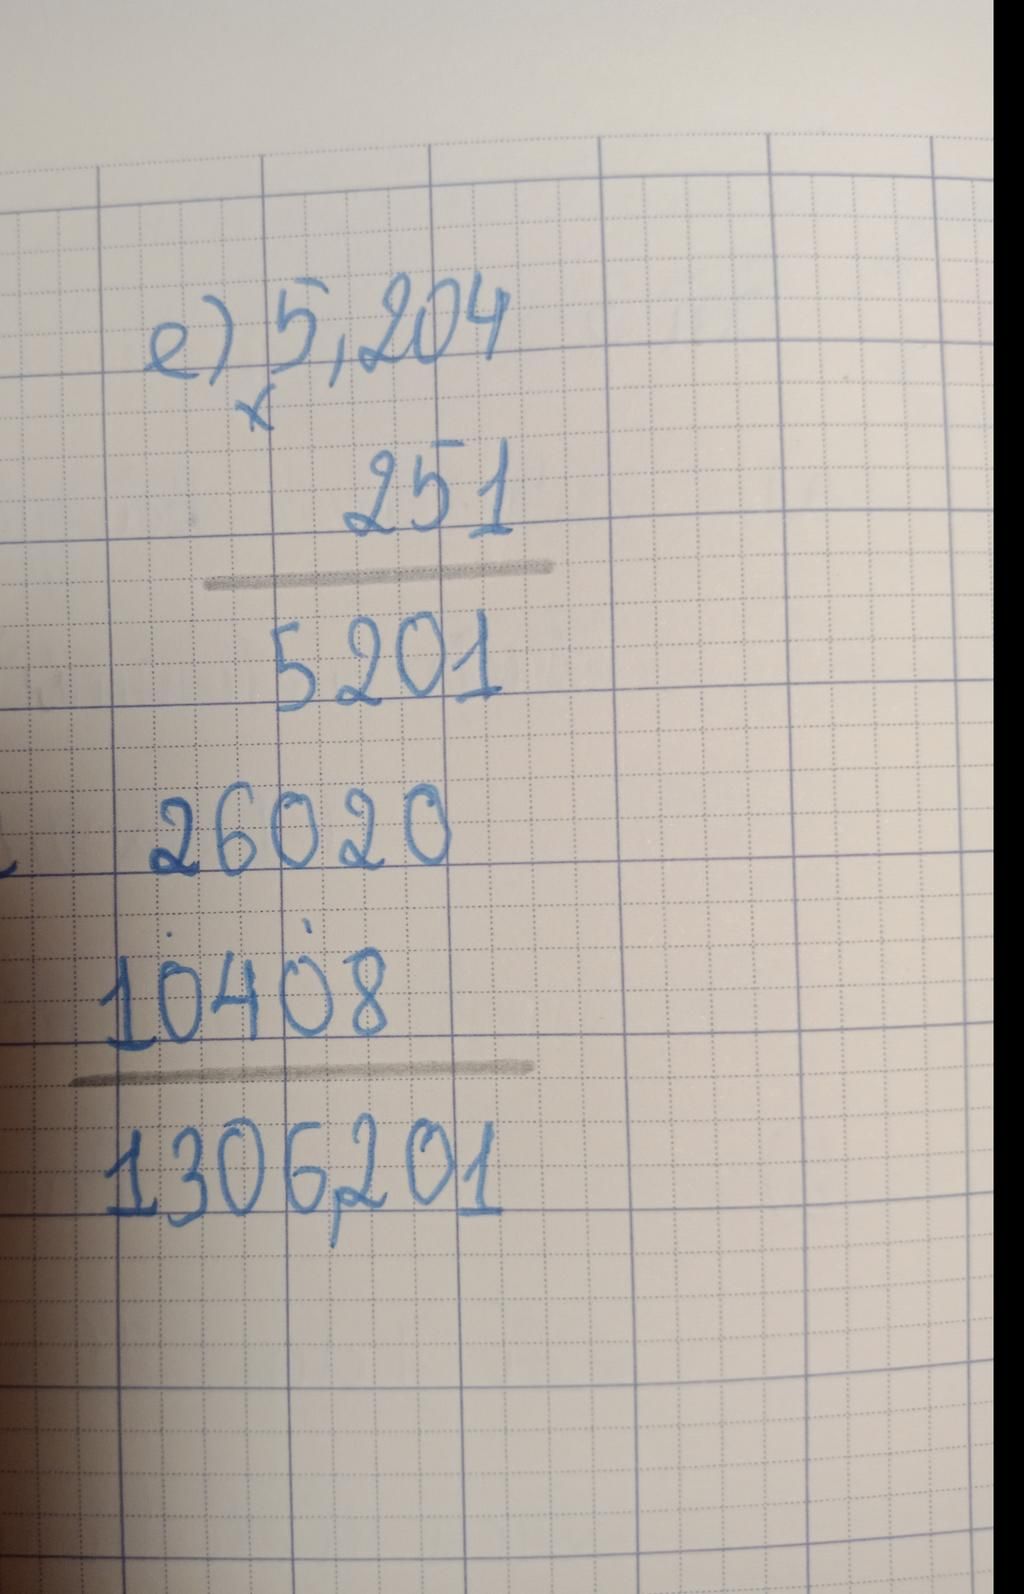 e) 5,204
x
251
5201
26020
10408
1306,201